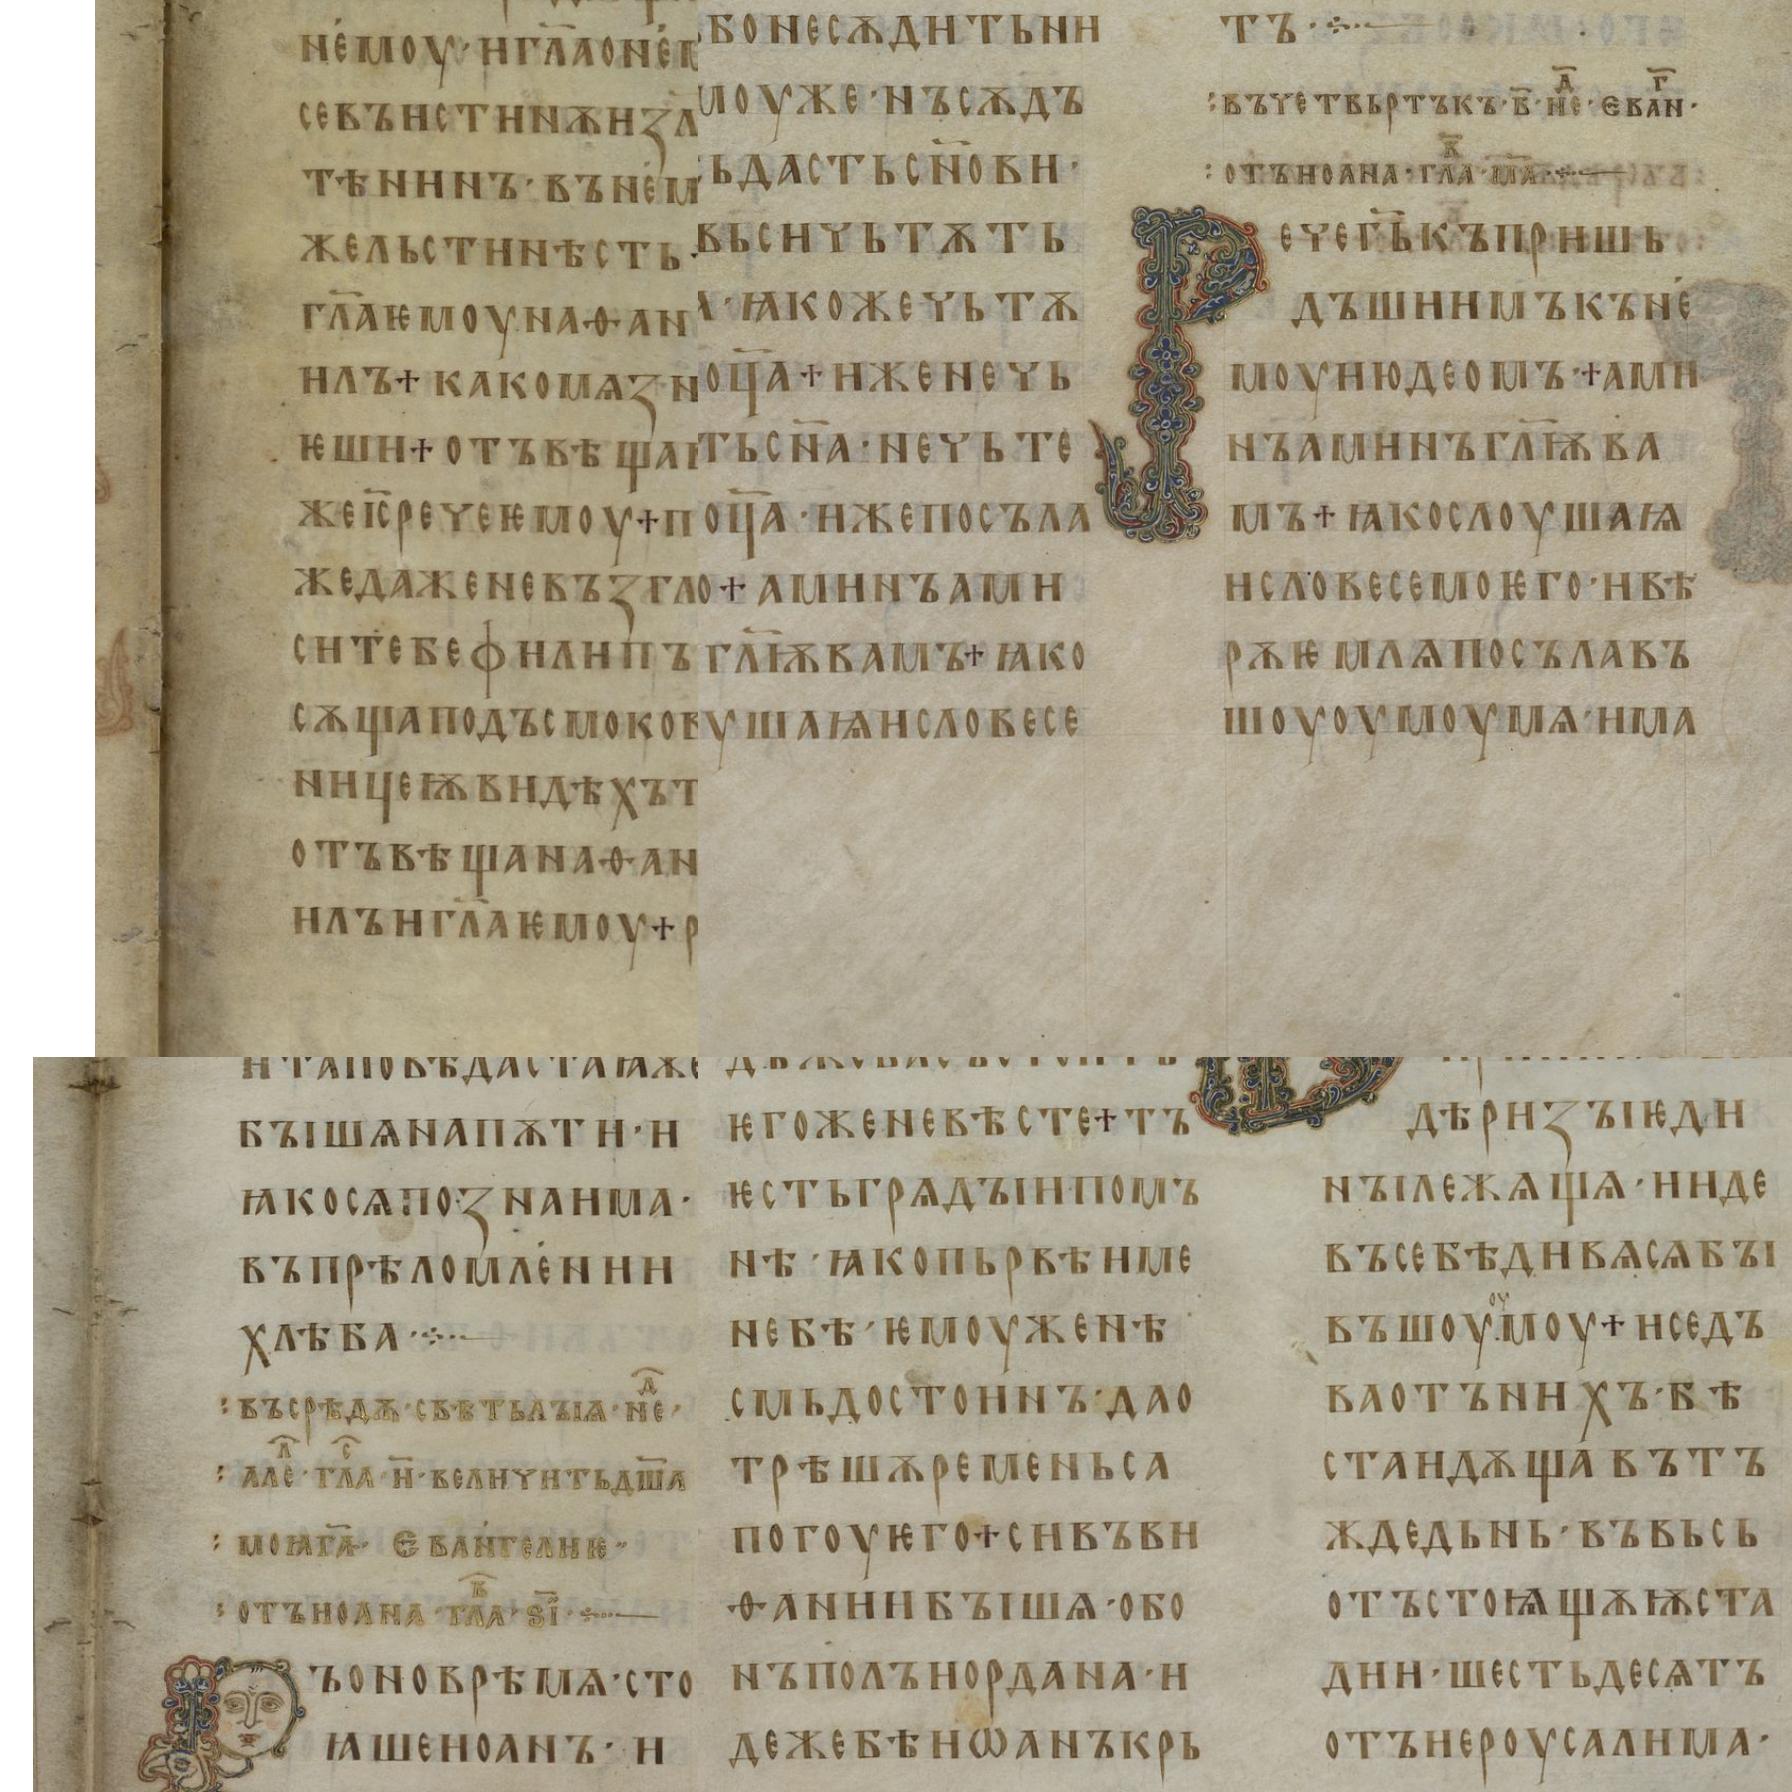 немоу · и г҃ла о не
се въ истинѫ из҃л
тѣнинъ · въ нем
же льсти нѣсть ·
г҃ла ѥмоу наѳан
илъ + како мѧ зн
ѥши + отъвѣща
же і҃с рече ѥмоу + п
же даже не възгл
си тебе филипъ
сѫща подъ смоков
ницеѭ видѣхъ т
отъвѣща наѳан
илъ и г҃ла ѥмоу + р
бо не сѫдитъ ни
моу же · нъ сѫдъ
ь дастъ с҃нови ·
вьси чьтѫтъ
ꙗкоже чьтѫ
о҃ца + иже не чь
тъ с҃на · не чьте
о҃ца · иже посъла
+ аминъ ами
г҃лѭ вамъ + ꙗко
ушаꙗи словесе
тъ ·
въ четвьртъкъ · в҃ · не · еван ·
отъ иоана · гла · м҃а ·
Рече г҃ь къ пришь
дъшиимъ къ не
моу июдеомъ · + ами
нъ аминъ г҃лѭ ва
мъ + ꙗко слоушаꙗ
и словесе моѥго · и вѣ
рѫ ѥмлѧ посълавъ
шоуоумоу мѧ · има
и та повѣдаста ꙗже
бъишѧ на пѫти · и
ꙗко сѧ позна има ·
въ прѣломлении
хлѣба ·
въ срѣдѫ · свѣтьлъіѧ · не ·
але · гла · н҃ · величитъ д҃ша
моꙗ г҃а · Евангелиѥ
отъ иоана · гла · ѕ҃і ·
ъ оно врѣмѧ · сто
ꙗше иоанъ · и
ѥгоже не вѣсте + тъ
ѥсть грѧдъіи по мъ
нѣ · ꙗко пьрвѣи ме
не бѣ · ѥмоуже нѣ
смь достоинъ · да о
трѣшѫ ремень са
погоу ѥго + си въ ви
ѳании бъишѧ · обо
нъ полъ иордана · и
деже бѣ иѡанъ крь
дѣри зъі ѥди
нъі лежѧщѧ · и иде
въ себѣ дивѧсѧ бъі
въшоуоумоу + и се дъ
ва отъ нихъ · бѣ
ста идѫща въ тъ
жде дьнь · въ вьсь
отъстоꙗщѫѭ ста
дии · шесть десѧтъ
отъ иероусалима ·